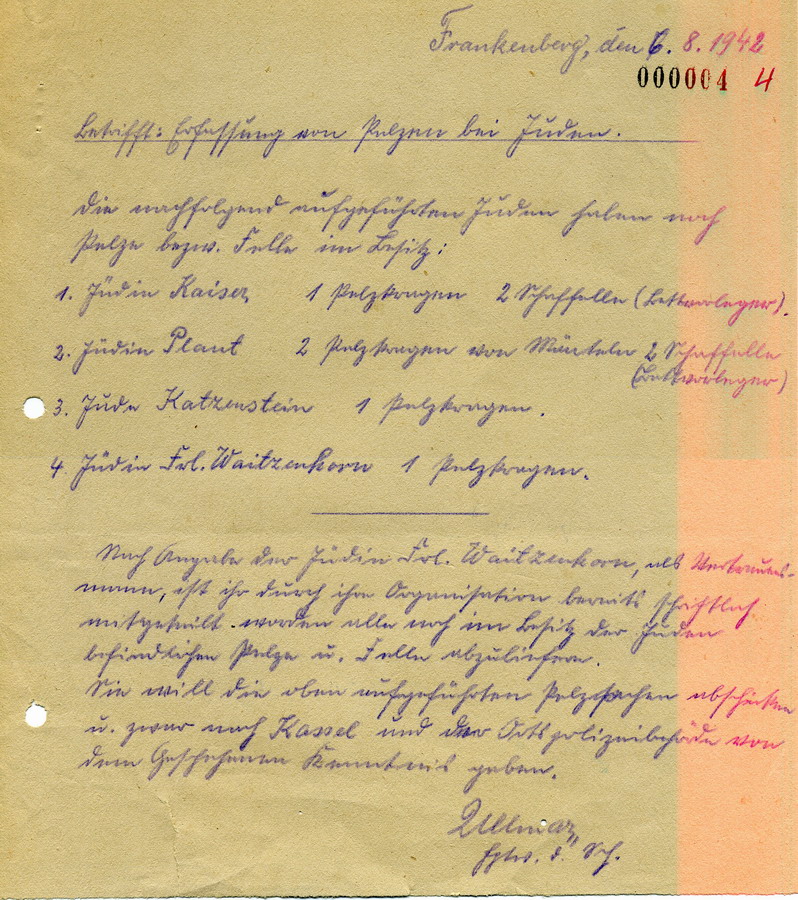 Frankenberg, den 6. 8. 1942
000004 4
Betrifft: Erfassung von Pelzen bei Juden.
Die nachfolgend aufgeführten Juden haben noch
Pelze bezw. Felle im Besitz:
1. Jüdin Kaiser 1 Pelzkragen 2 Schaffelle (Bettvorleger).
2. Jüdin Plaut 2 Pelzkragen von Mänteln 2 Schaffelle
(Bettvorleger)
3. Jude Katzenstein 1 Pelzkragen.
4. Jüdin Frl. Waitzenkorn 1 Pelzkragen.
Nach Angabe der Jüdin Frl. Waitzenkorn, als Vertrauens-
mann, ist ihr durch ihre Organisation bereits schriftlich
mitgeteilt worden alle noch im Besitz der Juden
befindlichen Pelze u. Felle abzuliefern.
Sie will die oben aufgeführten Pelzsachen abschicken
u. zwar nach Kassel und der Ortspolizeibehörde von
dem Geschehenen Kenntnis geben.
d. Sch.